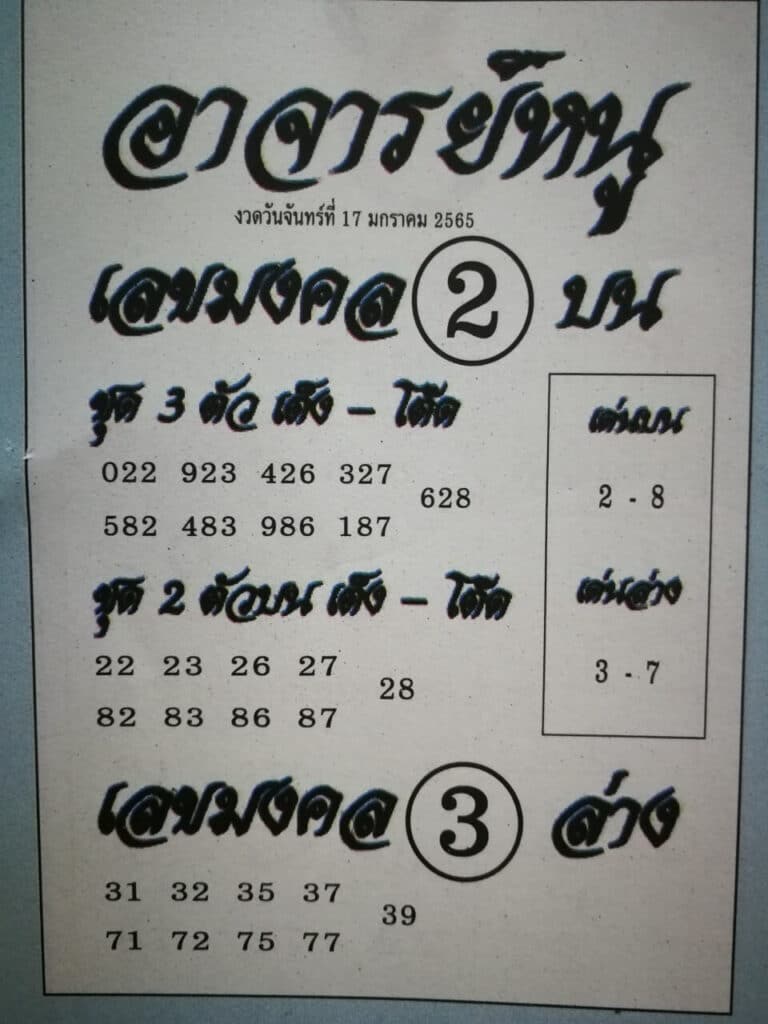 อาจารย์หนู
งวดวันจันทร์ที่ 17 มกราคม 2565
เลขมงคล 2 บน
ชุด 3 ตัว เต็ง - โต๊ด
022 923 426 327
628
582 483 986 187
เด่นบน
2 - 8
เด่นล่าง
3 - 7
ชุด 2 ตัวบน เต็ง - โต๊ด
22 23 26 27
28
82 83 86 87
เลขมงคล 3 ล่าง
31 32 35 37
39
71 72 75 77